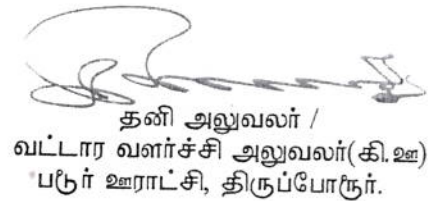 தனி அலுவலர் /
வட்டார வளர்ச்சி அலுவலர்(கி.ஊ)
படூர் ஊராட்சி, திருப்போரூர்.